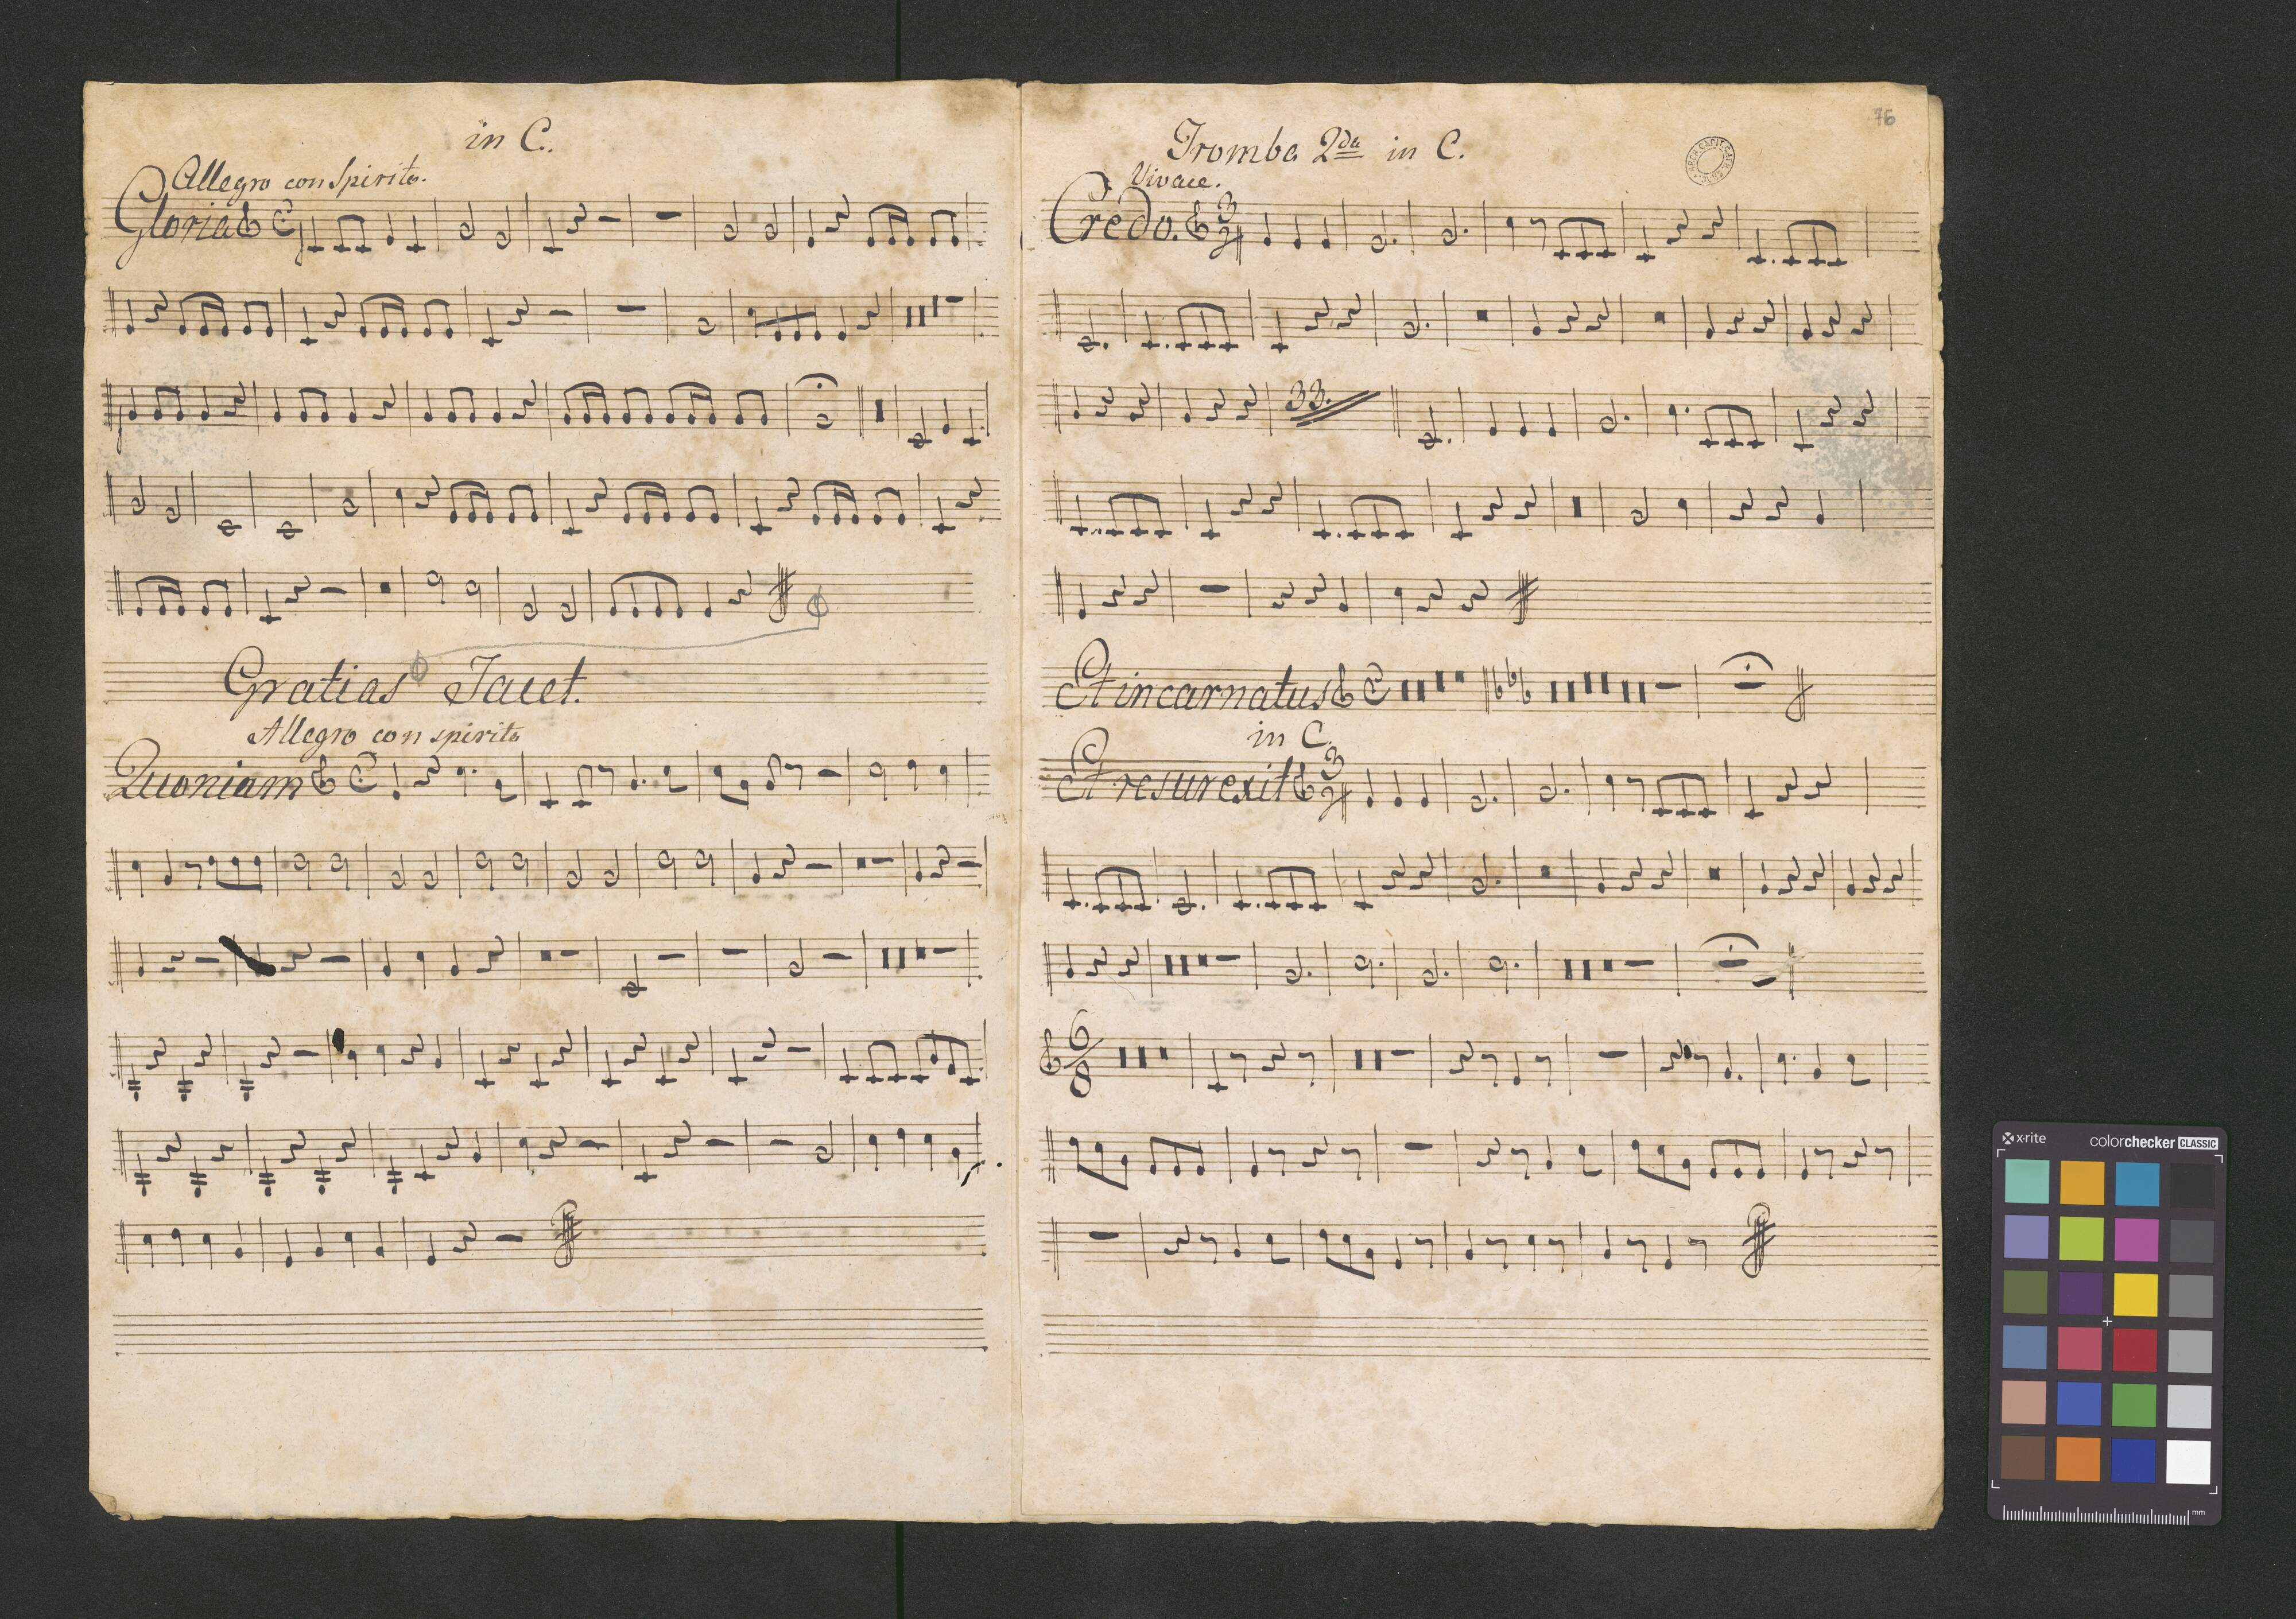 in C.
Allegro con Spirito.
Gloria
Gratias Tacet.
Allegro con spirito
Quoniam
76
Tromba 2da in C.
Vivace.
Credo. 3
33.
Et incarnatus
in C.
Et resurexit 3
6
8
x-rite
colorchecker CLASSIC
mm